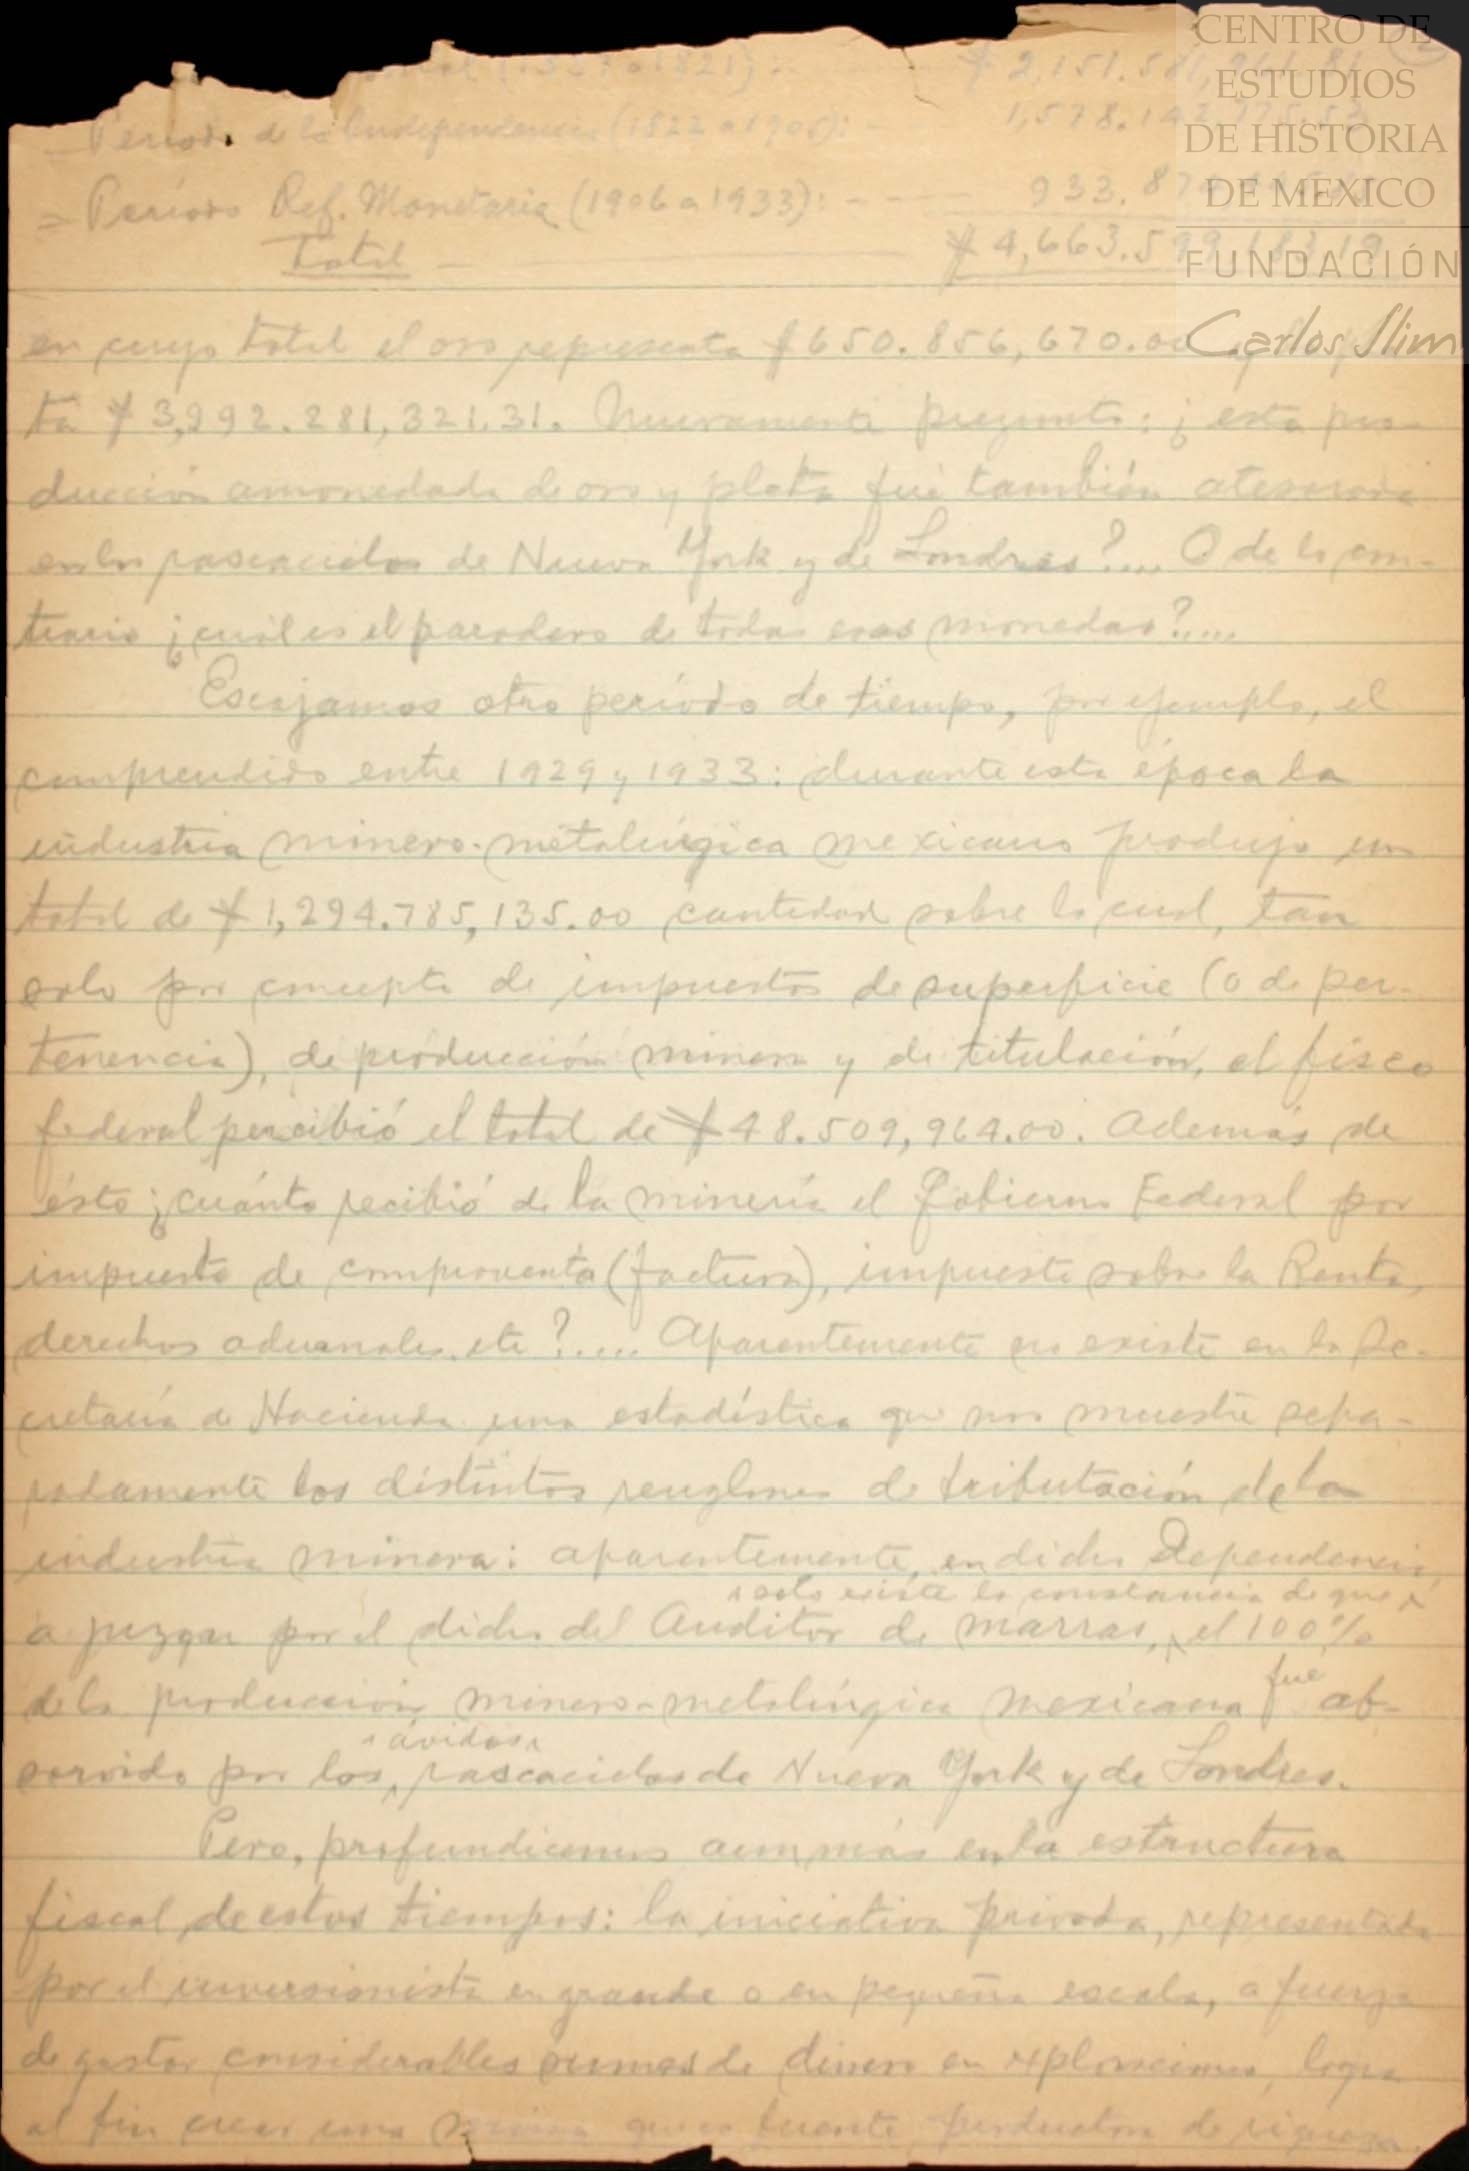 (1537 a 1821): $ 2,151.581,
CENTRO DE ESTUDIOS DE HISTORIA DE MEXICO
FUNDACIÓN
Carlos Slim
– Período de la Independencia (1822 a 1905): – 1,578.142,
= Período Ref. Monetaria (1906 a 1933): - - - 933.87
Total – $ 4,663.599,183.19
en cuyo total el oro representa $ 650.856,670.00
ta $ 3,992.281,321.31. Nuevamente pregunto: ¿esta pro-
ducción amonedada de oro y plata fué también atesorada
en los rascacielos de Nueva York y de Londres?.... O de lo con-
trario ¿cuál es el paradero de todas esas monedas?.....
Escojamos otro período de tiempo, por ejemplo, el
comprendido entre 1929 y 1933: durante esta época la
industria minero-metalúrgica mexicana produjo un
total de $ 1,294.785,135.00 cantidad sobre la cual, tan
solo por concepto de impuestos de superficie (o de per-
tenencia), de producción minera y de titulación, el fisco
federal percibió el total de $ 48.509,964.00. Además de
ésto ¿cuánto recibió de la minería el Gobierno Federal por
impuesto de compraventa (factura), impuesto sobre la Renta,
derechos aduanales, etc?..... Aparentemente no existe en la Se-
cretaría de Hacienda una estadística que nos muestre sepa-
radamente los distintos renglones de tributación de la
industria minera: aparentemente, en dicha Dependencia,
a juzgar por el dicho del Auditor de marras, solo existe la constancia de que el 100%
de la producción minero-metalúrgica mexicana fué ab-
sorvida por los ávidos rascacielos de Nueva York y de Londres.
Pero, profundicemos aun más en la estructura
fiscal de estos tiempos: la iniciativa privada, representada
por el inversionista en grande o en pequeña escala, a fuerza
de gastar considerables sumas de dinero en exploraciones, logra
al fin crear una mina que es fuente productora de riqueza